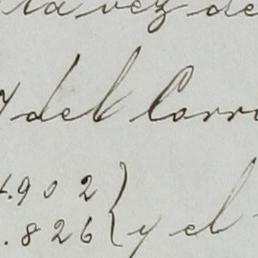 ta vez de
y del Corr
4.902
.826 } y el